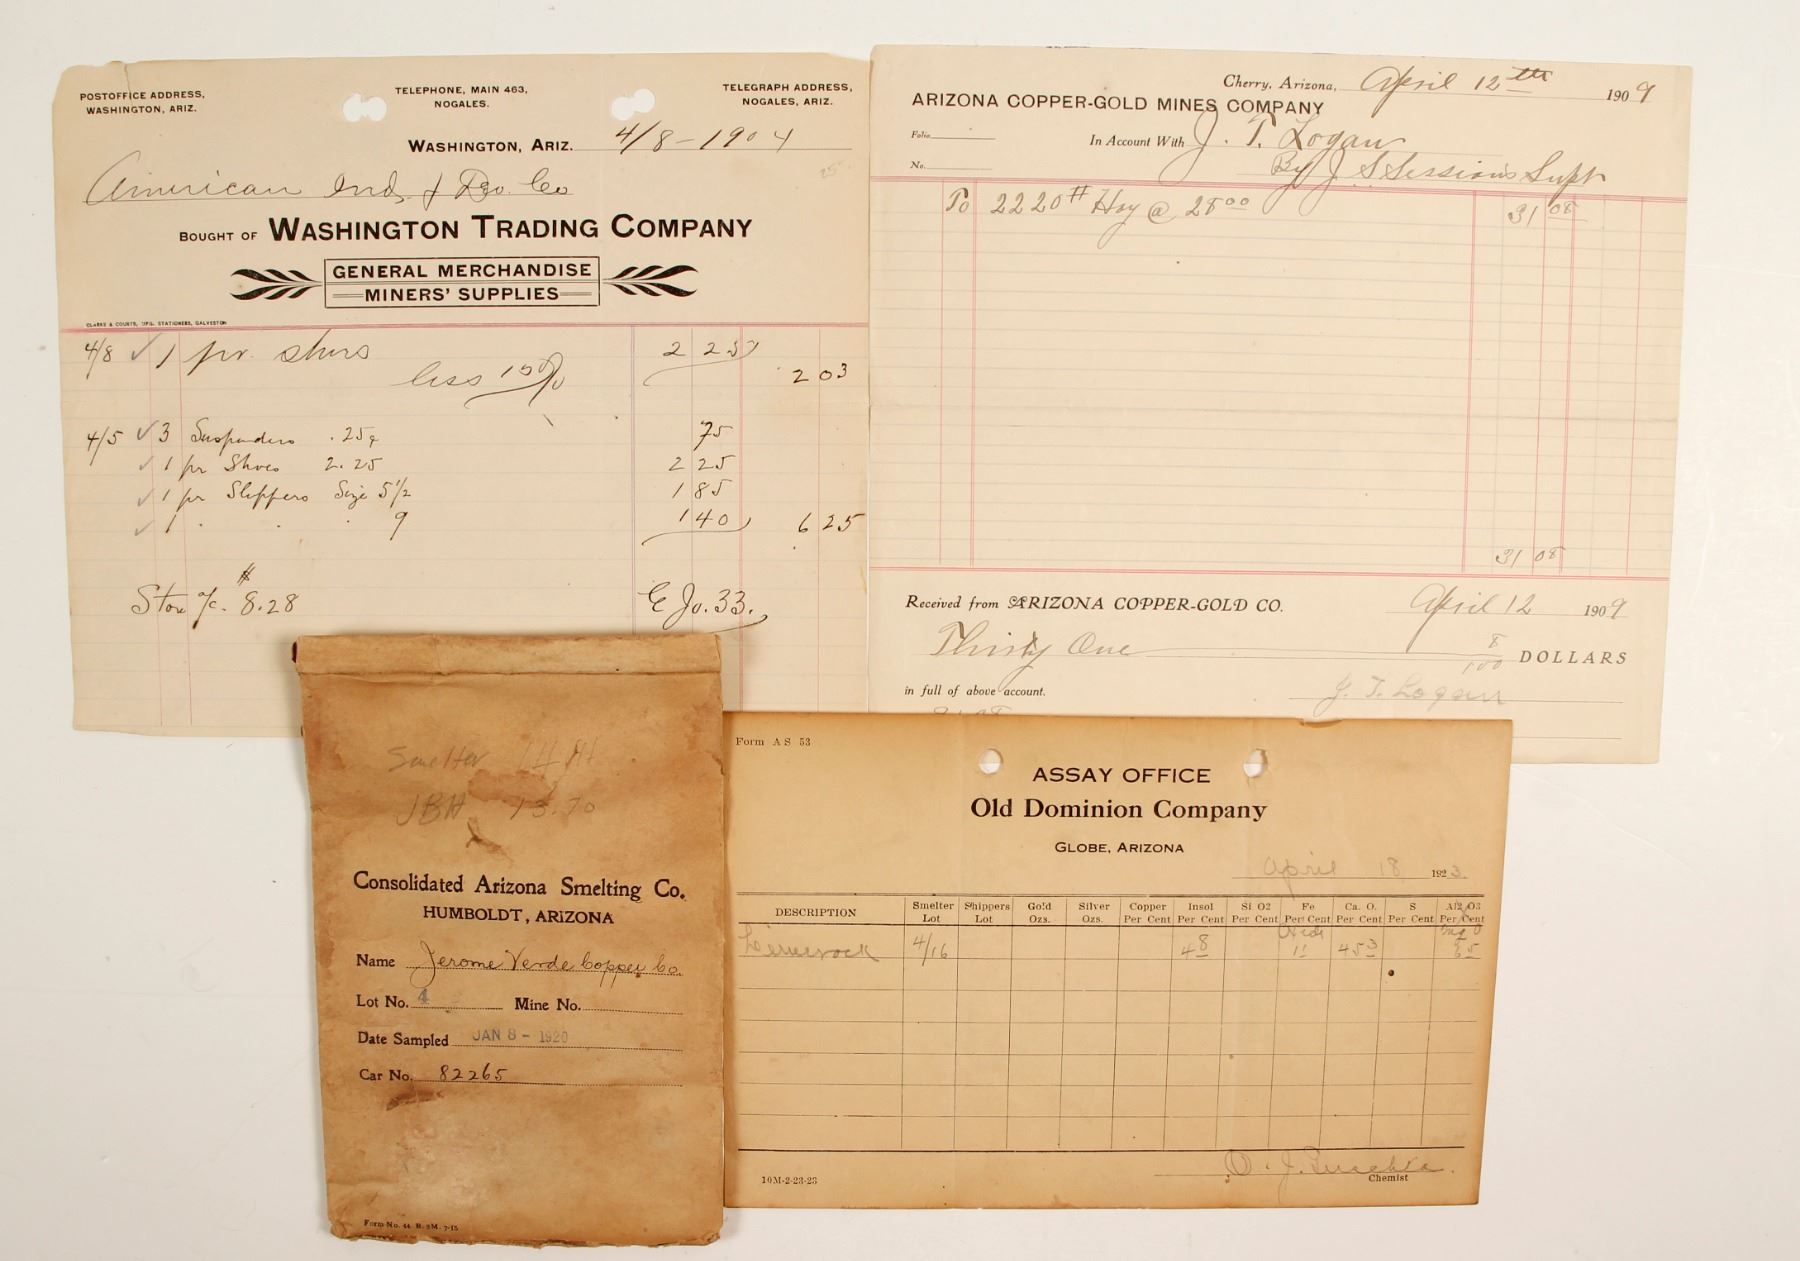 POSTOFFICE ADDRESS,
WASHINGTON, ARIZ.
TELEPHONE, MAIN 463,
NOGALES.
TELEGRAPH ADDRESS,
NOGALES, ARIZ.
WASHINGTON, ARIZ. 4/8-1904
American Ind. & Dev. Co
BOUGHT OF WASHINGTON TRADING COMPANY
GENERAL MERCHANDISE
MINERS' SUPPLIES
CLARKE & COURTS, MFG. STATIONERS, GALVESTON
4/8 ✓ 1 pr. shoes 2 25
less 10% 2 03
4/5 ✓ 3 Suspenders .25¢ 75
✓ 1 pr Shoes 2.25 2 25
✓ 1 pr Slippers Size 5 1/2 1 85
✓ 1 . . . 9 1 40 6 25
Store a/c. # 8.28
Jo. 33.
Cherry, Arizona, April 12th 1909
ARIZONA COPPER-GOLD MINES COMPANY
Folio
In Account With J. T. Logan
No.
By J S Sessions Supt
To 2220# Hay @ 28 00 31 08
31 08
Received from ARIZONA COPPER-GOLD CO. April 12 1909
Thirty One 8/100 DOLLARS
in full of above account.
J. T. Logan
Smelter
JBH 13.70
Consolidated Arizona Smelting Co.
HUMBOLDT, ARIZONA
Name Jerome Verde Copper Co.
Lot No. 4 Mine No.
Date Sampled JAN 8 - 1920
Car No. 82265
Form No. 44 R. 2M. 7-15
Form A S 53
ASSAY OFFICE
Old Dominion Company
GLOBE, ARIZONA
April 18 1923.
DESCRIPTION Smelter Lot Shippers Lot Gold Ozs. Silver Ozs. Copper Per Cent Insol Per Cent Si O2 Per Cent Fe Per Cent Ca. O. Per Cent S Per Cent Al2 O3 Per Cent
Mg O
Limerock 4/16 4 8 1 1 45 3
10M-2-23-23
Chemist